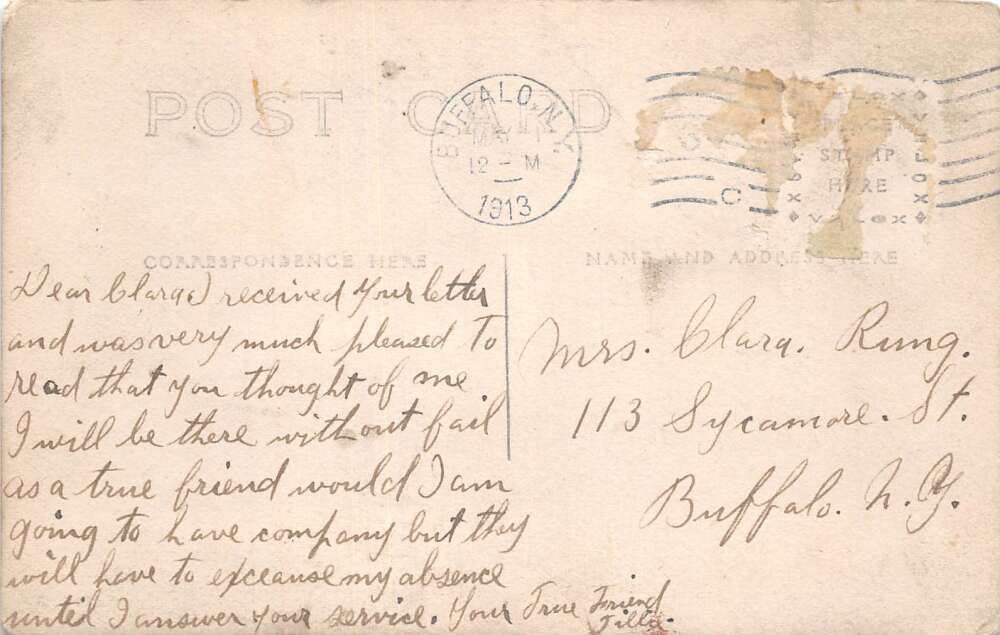 POST CARD
BUFFALO, N.Y.
MAY 1
12 - M
1913
PLACE
STAMP
HERE
VELOX
CORRESPONDENCE HERE
NAME AND ADDRESS HERE
Dear Clara I received your letter
and was very much pleased to
read that you thought of me
I will be there without fail
as a true friend would I am
going to have company but they
will have to exceause my absence
until I answer your service. Your True Friend
Tillie.
Mrs. Clara. Rung.
113 Sycamore. St.
Buffalo. N.Y.